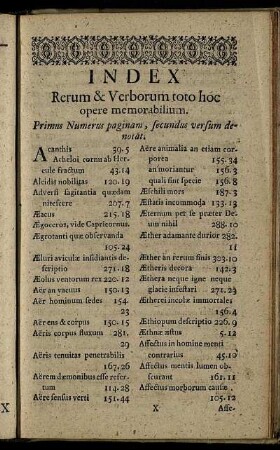 INDEX
Rerum & Verborum toto hoc
opere memorabilium.
Primus Numerus paginam, secundus versum de-
notat.
Acanthis 39.5
Acheloi cornu ab Her-
cule fractum 43.14
Alcidis nobilitas 120.19
Adversi sagittantia quædam
nitescere 207.7
Æacus 215.18
Ægocerus, vide Capricornus.
Ægrotanti quæ observanda
105.24
Æluri aviculæ insidiantis de-
scriptio 271.18
Æolus ventorum rex 220.12
Aër an vacuus 150.13
Aër hominum sedes 154.
23
Aër ens & corpus 150.15
Aëris corpus fluxum 281.
29
Aëris tenuitas penetrabilis
167.26
Aërem dæmonibus esse refer-
tum 114.28
Aëre sensus verti 151.44
Aëre animalia an etiam cor-
porea 155.34
an moriantur 156.3
quali sint specie 156.8
Æschili mors 187.3
Æstatis incommoda 133.13
Æternum per se præter De-
um nihil 288.10
Æther adamante durior 282.
11
Æther an rerum finis 303.10
Ætheris decora 142.3
Æthera neque igne neque
glacie infestari 271.23
Ætherei incolæ immortales
156.4
Æthiopum descriptio 226.9
Æthnæ æstus 5.12
Affectus in homine menti
contrarius 45.10
Affectus mentis lumen ob-
scurant 161.11
Affectus morborum causæ
105.12
X
Affe-
X